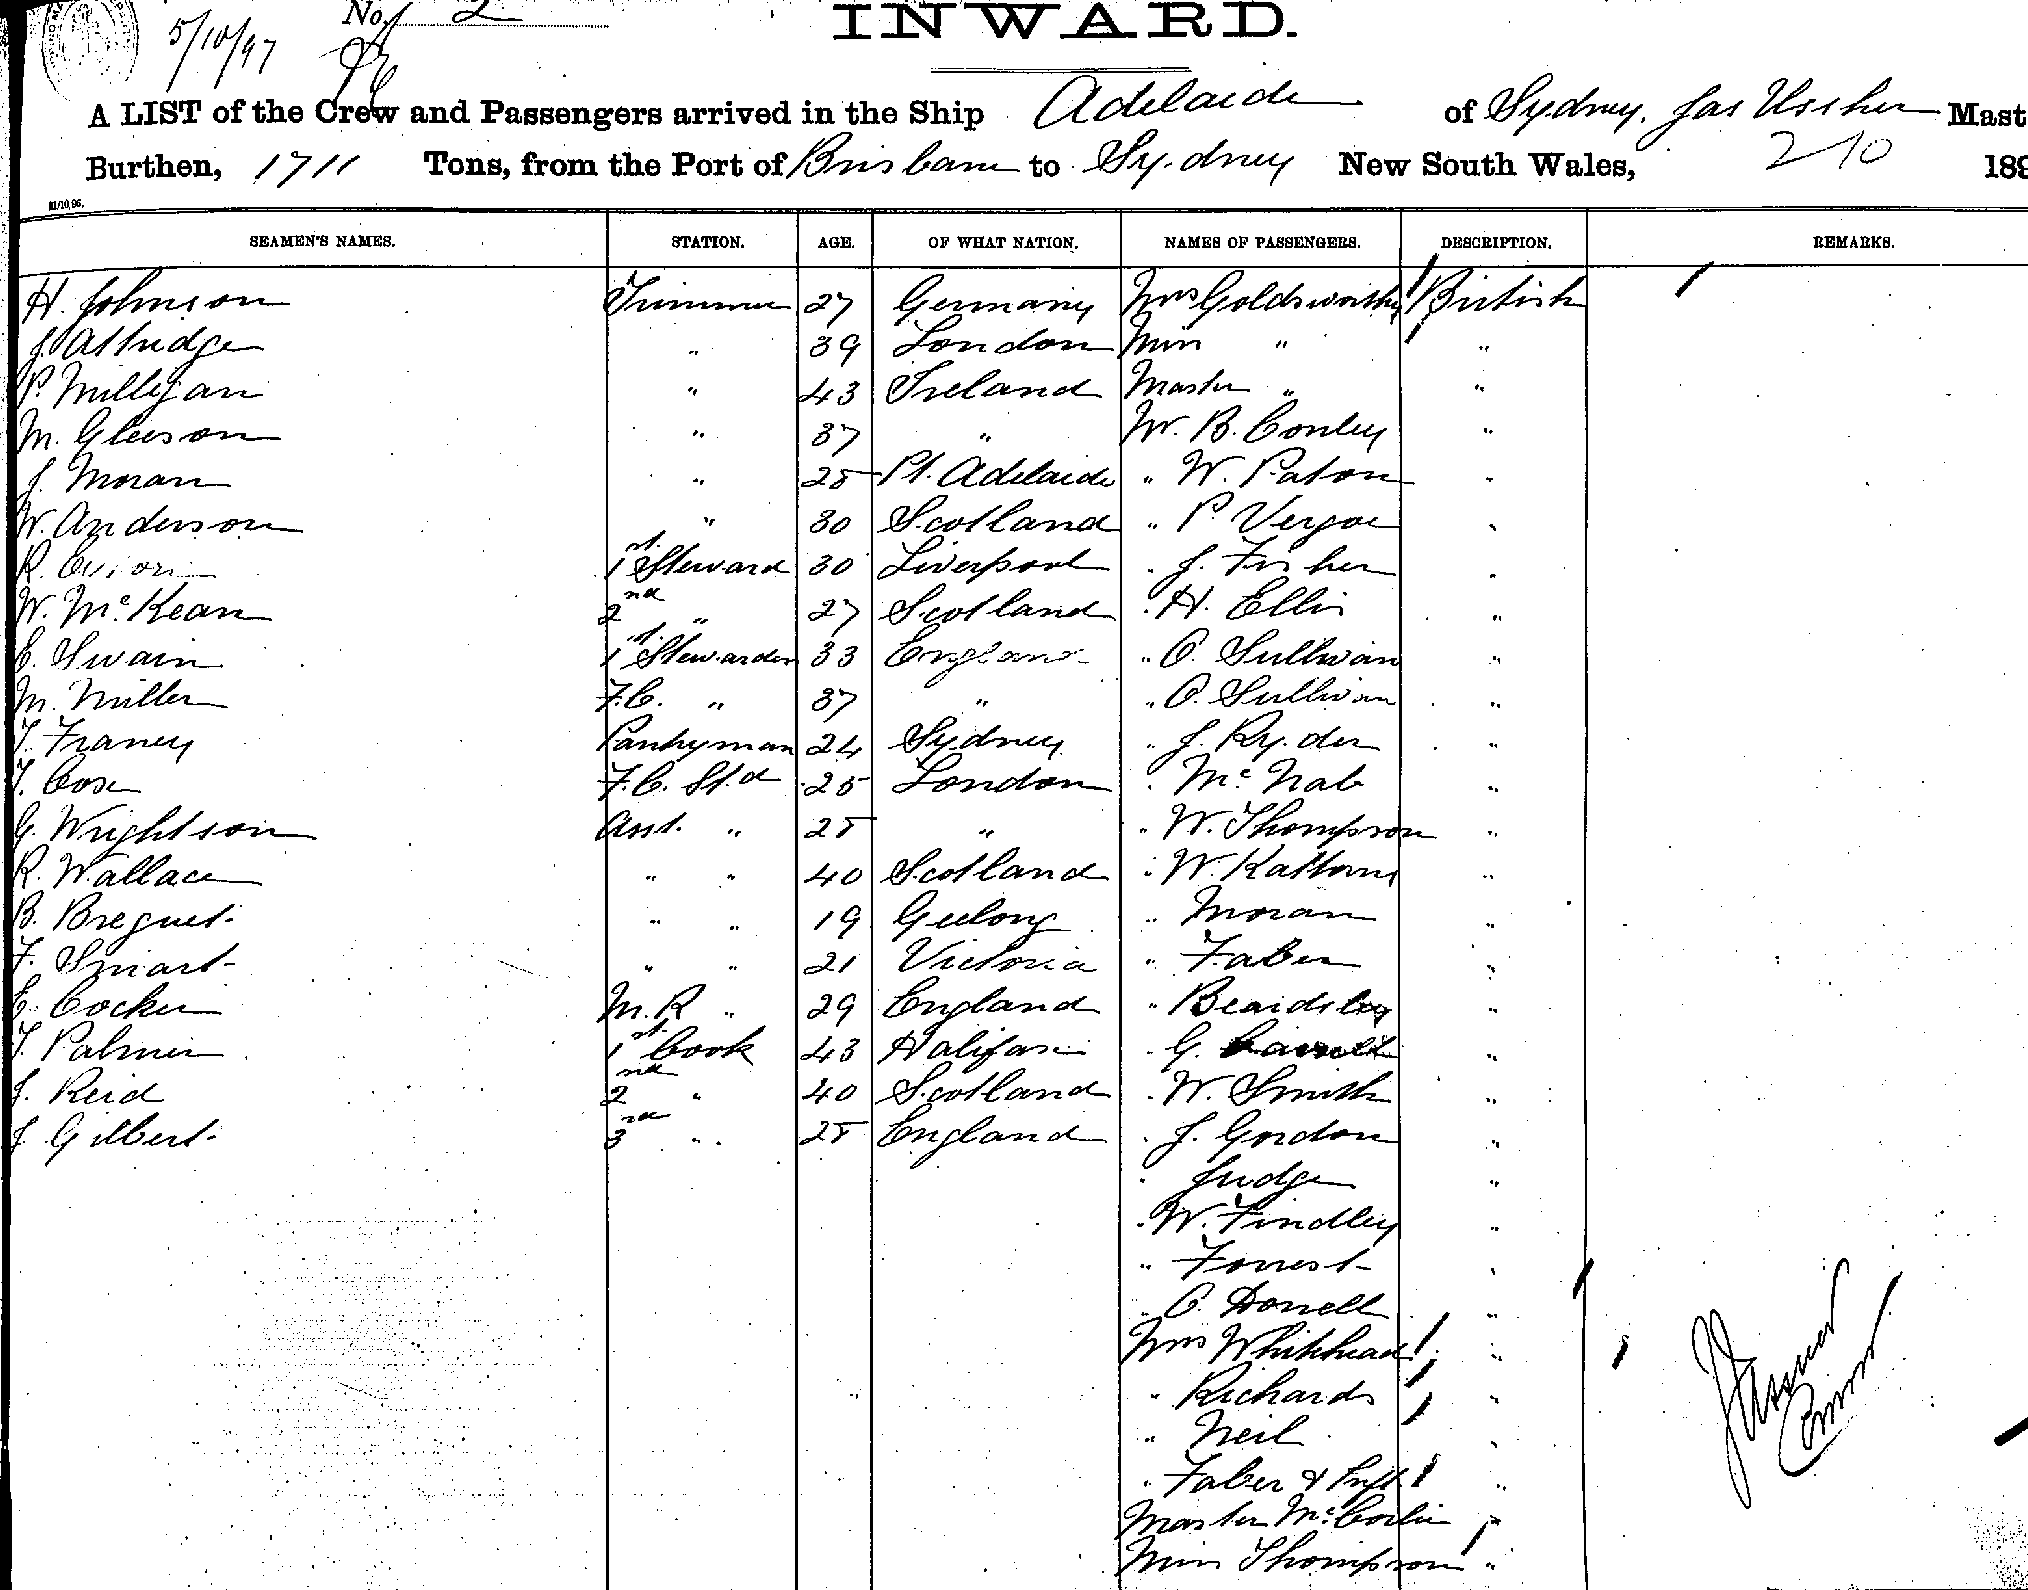 No. 2
5/10/97
INWARD.
A LIST of the Crew and Passengers arrived in the Ship Adelaide of Sydney, Jas Ussher Mast
Burthen, 1711 Tons, from the Port of Brisbane to Sydney New South Wales, 2/10 189
SEAMEN'S NAMES. STATION. AGE. OF WHAT NATION. NAMES OF PASSENGERS. DESCRIPTION. REMARKS.
H. Johnson Trimmer 27 Germany Mrs Goldsworthy British
J. Attridge " 39 London Miss " "
P. Milligan " 43 Ireland Master " "
M. Gleeson " 37 " Mr. B. Conley "
J. Moran " 25 Pt. Adelaide " W. Paton "
W. Anderson " 30 Scotland " P. Vergoe "
R. 1st Steward 30 Liverpool " J. Fisher "
W. McKean 2nd " 27 Scotland " H. Ellis "
E. Swain 1st Stewardess 33 England " O. Sullivan "
M. Miller F.C. " 37 " " O. Sullivan "
T. Franey Pantryman 24 Sydney " J. Ryder "
T. Cose F.C. Std 25 London " McNab "
G. Wrightson Asst. " 25 " " W. Thompson "
R. Wallace " " 40 Scotland " W. "
B. Breguet " " 19 Geelong " Moran "
F. Smart " " 21 Victoria " Faber "
E. Cocker M.R " 29 England " Beardsley "
T. Palmer 1st Cook 43 Halifax " G. "
J. Reid 2nd " 40 Scotland " W. Smith "
J. Gilbert 3rd " 25 England " J. Gordon "
" Judge "
" W. Findley "
" Forrest "
" O. Donnell "
Mrs Whitehead "
" Richards "
" Neil "
" Faber & Inft "
Master "
Miss Thompson "